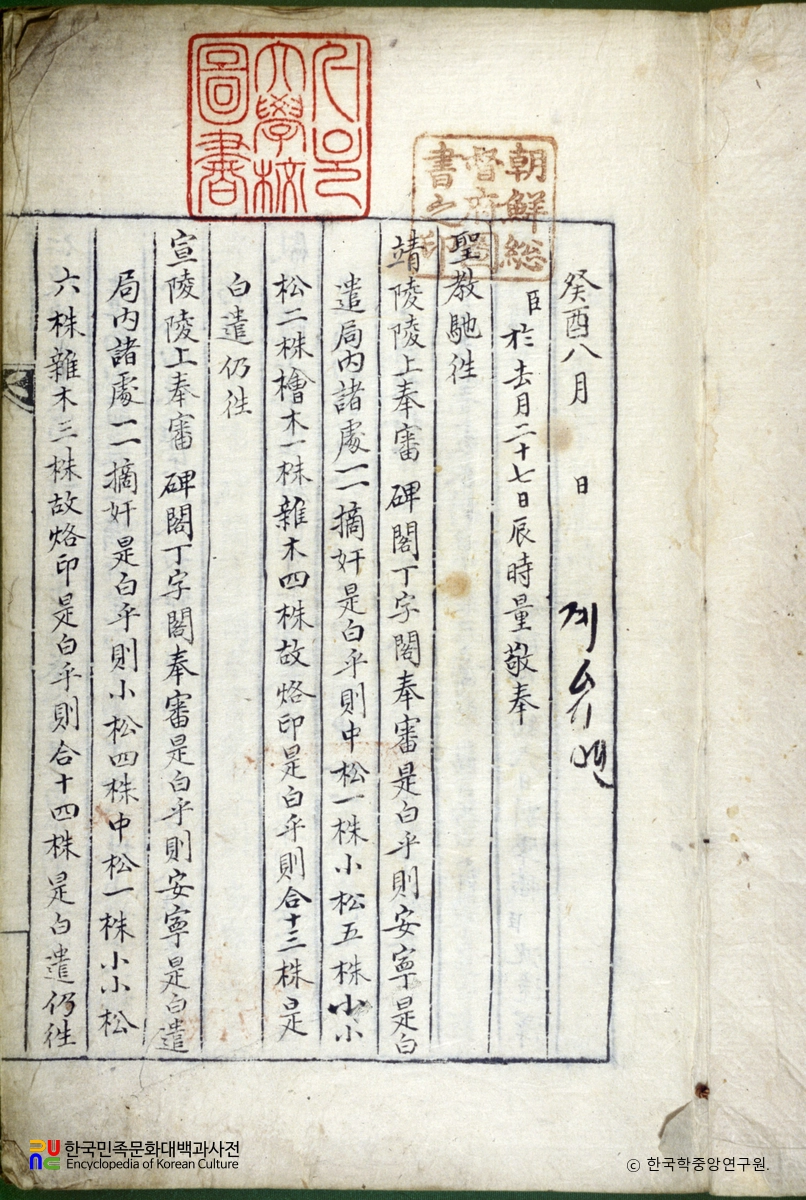 서울
大學校
圖書
朝鮮総
督府圖
書之印
癸酉八月 日
臣於去月二十七日辰時量敬奉
聖教馳徃
靖陵陵上奉審 碑閣丁字閣奉審是白乎則安寧是白
遣局内諸處一一摘奸是白乎則中松一株小松五株小小
松二株檜木一株雜木四株故烙印是白乎則合十三株是
白遣仍徃
宣陵陵上奉審 碑閣丁字閣奉審是白乎則安寧是白遣
局内諸處一一摘奸是白乎則小松四株中松一株小小松
六株雜木三株故烙印是白乎則合十四株是白遣仍徃
한국민족문화대백과사전
Encyclopedia of Korean Culture
ⓒ 한국학중앙연구원.